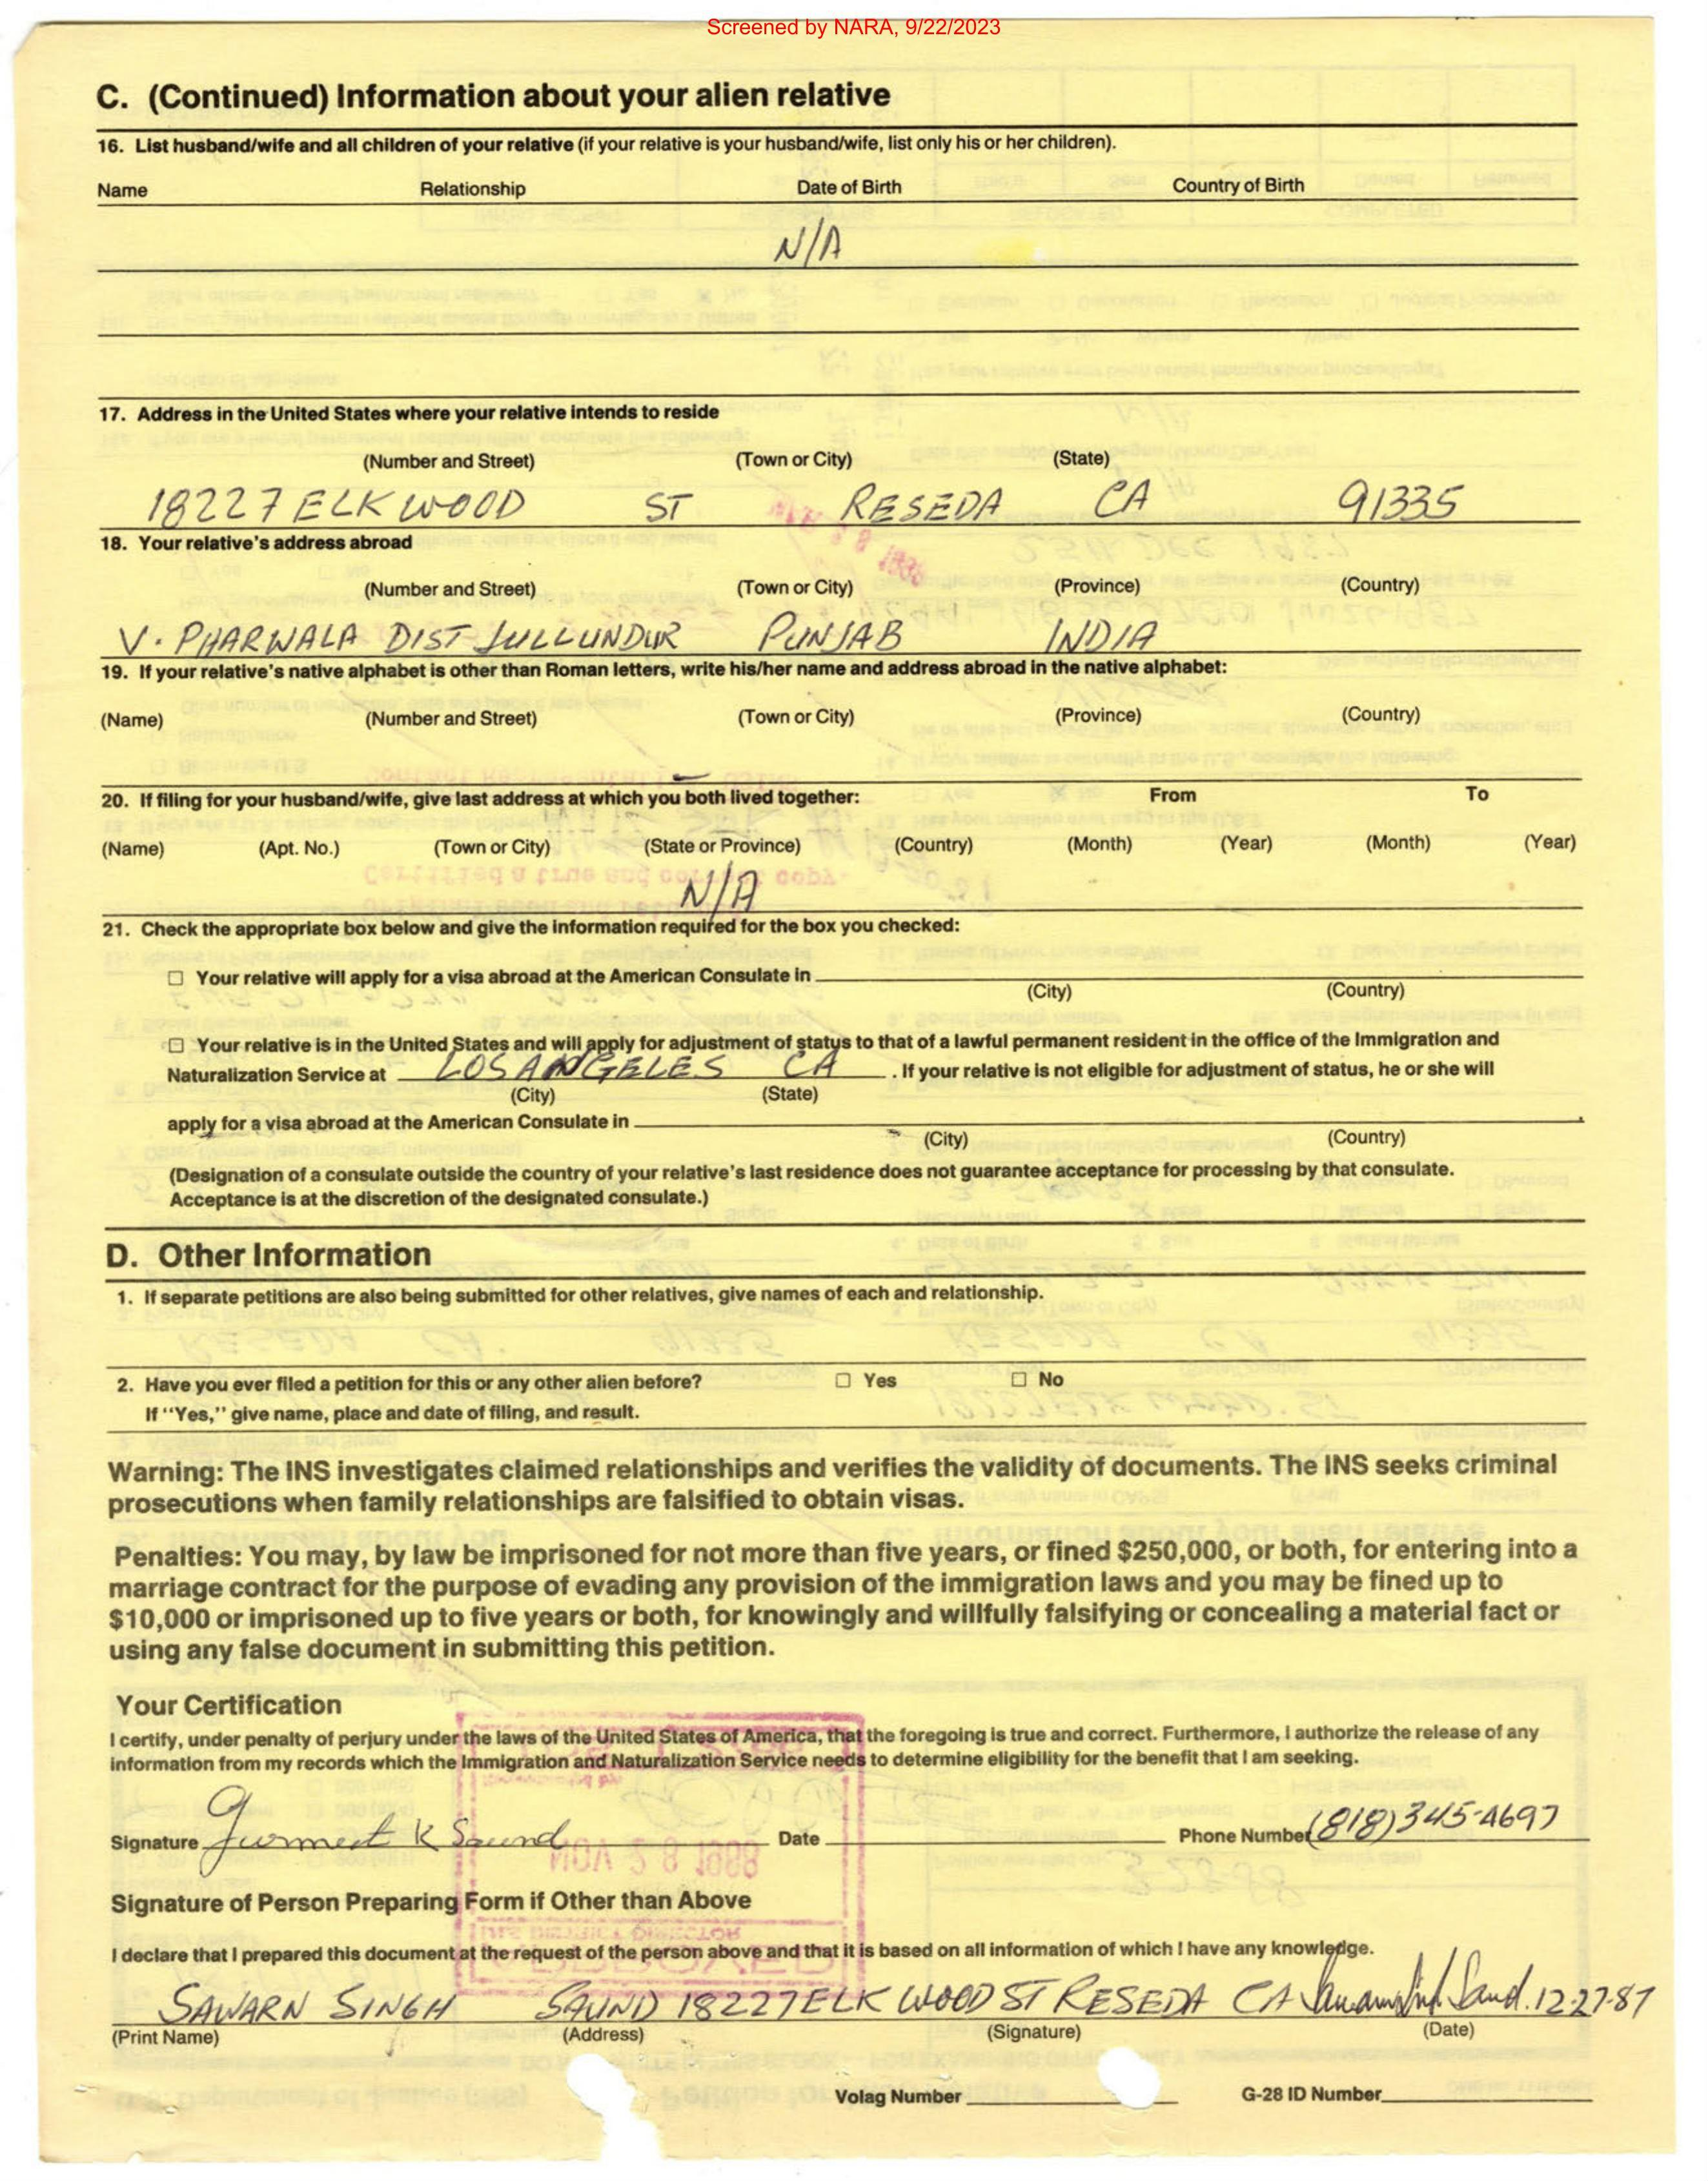 Screened by NARA, 9/22/2023
C. (Continued) Information about your alien relative
16. List husband/wife and all children of your relative (if your relative is your husband/wife, list only his or her children).
Name Relationship Date of Birth Country of Birth
N/A
17. Address in the United States where your relative intends to reside
(Number and Street) (Town or City) (State)
18227 ELK WOOD ST RESEDA CA 91335
18. Your relative's address abroad
(Number and Street) (Town or City) (Province) (Country)
V. PHARWALA DIST JULLUNDUR PUNJAB INDIA
19. If your relative's native alphabet is other than Roman letters, write his/her name and address abroad in the native alphabet:
(Name) (Number and Street) (Town or City) (Province) (Country)
20. If filing for your husband/wife, give last address at which you both lived together: From To
(Name) (Apt. No.) (Town or City) (State or Province) (Country) (Month) (Year) (Month) (Year)
N/A
21. Check the appropriate box below and give the information required for the box you checked:
☐ Your relative will apply for a visa abroad at the American Consulate in
(City) (Country)
☐ Your relative is in the United States and will apply for adjustment of status to that of a lawful permanent resident in the office of the Immigration and
Naturalization Service at LOS ANGELES CA. If your relative is not eligible for adjustment of status, he or she will
(City) (State)
apply for a visa abroad at the American Consulate in
(City) (Country)
(Designation of a consulate outside the country of your relative's last residence does not guarantee acceptance for processing by that consulate.
Acceptance is at the discretion of the designated consulate.)
D. Other Information
1. If separate petitions are also being submitted for other relatives, give names of each and relationship.
2. Have you ever filed a petition for this or any other alien before? ☐ Yes ☐ No
If "Yes," give name, place and date of filing, and result.
Warning: The INS investigates claimed relationships and verifies the validity of documents. The INS seeks criminal
prosecutions when family relationships are falsified to obtain visas.
Penalties: You may, by law be imprisoned for not more than five years, or fined $250,000, or both, for entering into a
marriage contract for the purpose of evading any provision of the immigration laws and you may be fined up to
$10,000 or imprisoned up to five years or both, for knowingly and willfully falsifying or concealing a material fact or
using any false document in submitting this petition.
Your Certification
I certify, under penalty of perjury under the laws of the United States of America, that the foregoing is true and correct. Furthermore, I authorize the release of any
information from my records which the Immigration and Naturalization Service needs to determine eligibility for the benefit that I am seeking.
Signature Gurmeet K Saund Date Phone Number (818) 345-4697
Signature of Person Preparing Form if Other than Above
I declare that I prepared this document at the request of the person above and that it is based on all information of which I have any knowledge.
SAWARN SINGH SAUND 18227 ELK WOOD ST RESEDA CA Saund. 12-27-87
(Print Name) (Address) (Signature) (Date)
Volag Number G-28 ID Number